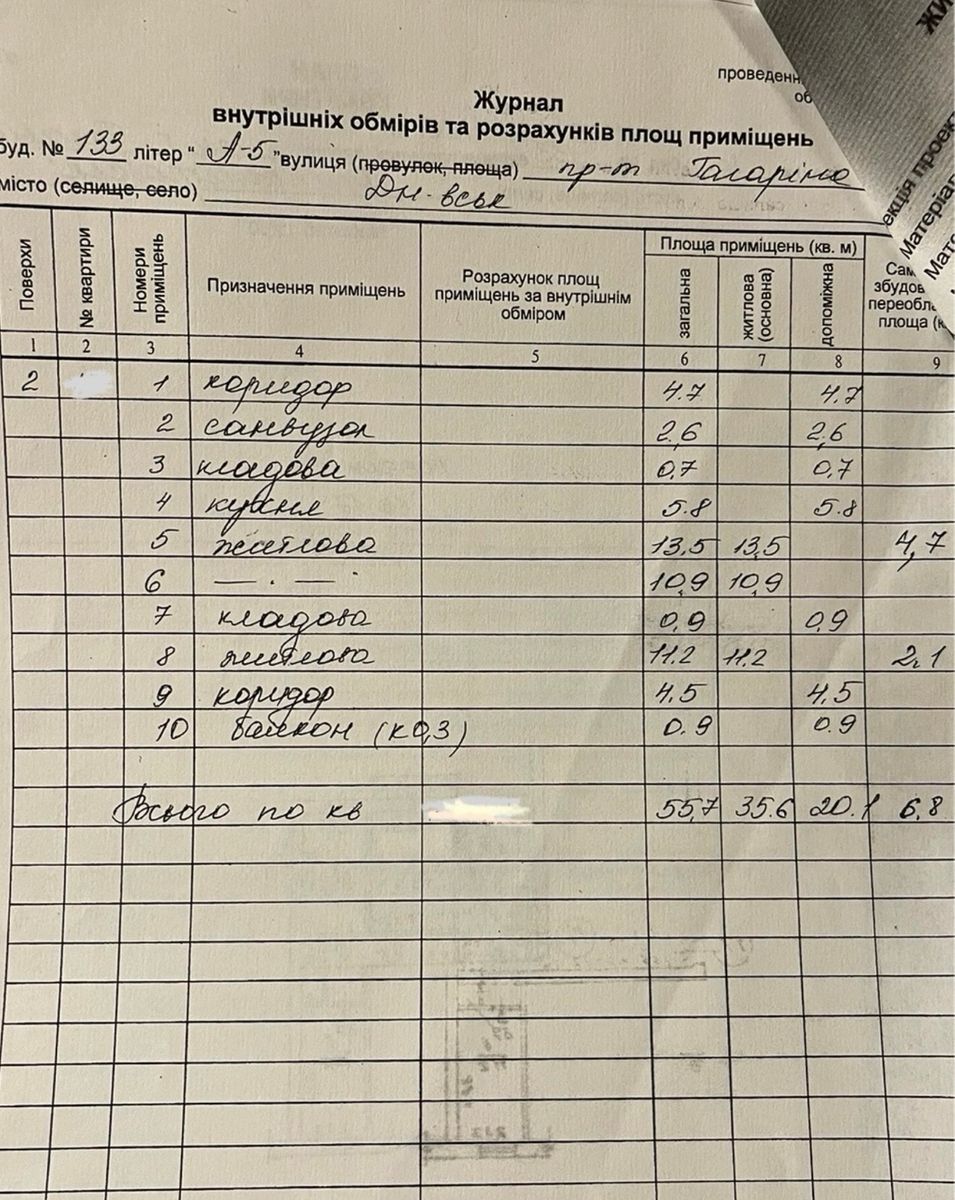 проведен
об
Журнал
внутрішніх обмірів та розрахунків площ приміщень
буд. № 133 літер " А-5 " вулиця (провулок, площа) пр-т Гагаріна
місто (селище, село) Дн-вськ
Поверхи № квартири Номери приміщень Призначення приміщень Розрахунок площ приміщень за внутрішнім обміром Площа приміщень (кв. м) загальна житлова (основна) допоміжна Сам збудов переобл площа (к
1 2 3 4 5 6 7 8 9
2 1 коридор 4.7 4.7
2 санвузол 2,6 2,6
3 кладова 0,7 0,7
4 кухня 5.8 5.8
5 житлова 13,5 13,5 4,7
6 — . — . 10,9 10,9
7 кладова 0,9 0,9
8 житлова 11.2 11.2 2,1
9 коридор 4,5 4,5
10 балкон (к0,3) 0.9 0.9
Всього по кв 55,7 35.6 20.1 6,8
жи
екція проек
Матеріа
Мат